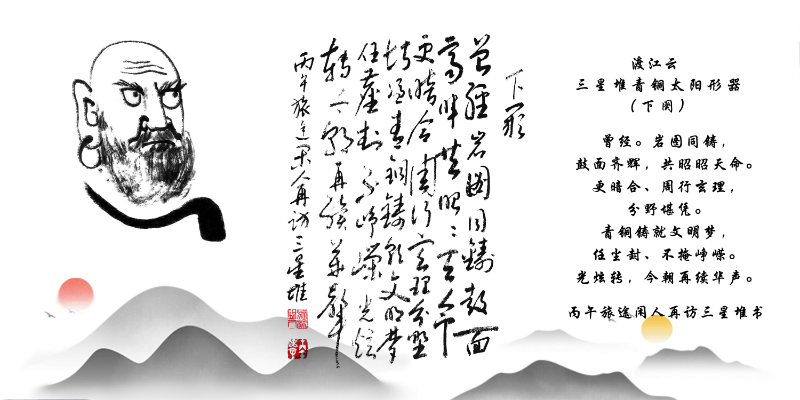 下阕
曾經岩圖同鑄鼓面
齐輝共昭〻天命
更暗合周行玄理分野
堪憑青銅鑄就文明梦
任塵封不掩峥嵘光炫
轉今朝再续華声
丙午旅途闲人再访三星堆
渡江云
三星堆青铜太阳形器
（下阕）
曾经。岩图同铸，
鼓面齐辉，共昭昭天命。
更暗合、周行玄理，
分野堪凭。
青铜铸就文明梦，
任尘封、不掩峥嵘。
光炫转，今朝再续华声。
丙午旅途闲人再访三星堆书